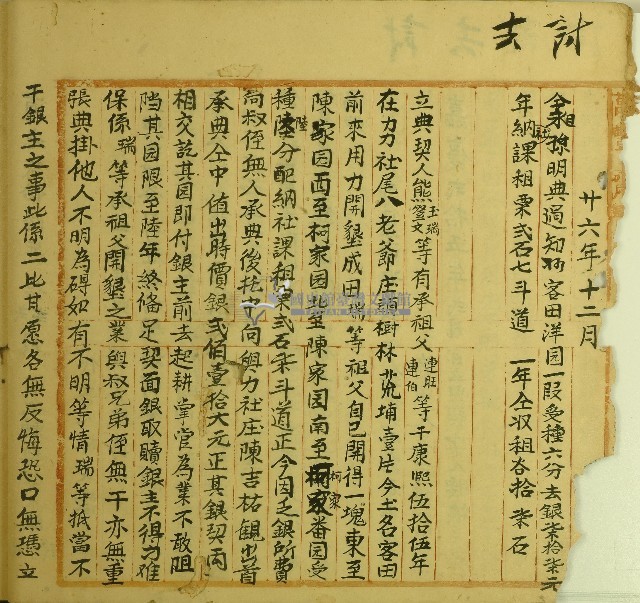 討去
廿六年十二月
全祖孫明典過知 客田洋园一段受種六分去銀柒拾柒元
年納課租粟弍石七斗道 一年仝収租 拾柒石
立典契人熊玉瑞登文等有承祖父連旺連伯等于康熙伍拾伍年
在力力社尾八老爺庄頭樹林荒埔壹片今土名客田
前來用力開墾成田瑞等祖父自己開得一塊東至
陳家园西至柯家园北至陳家园南至柯家番园受
種陸分配納社課租粟弍石柒斗道正今因乏銀所費
尚叔侄無人承典後托 向與力社庄陳吉祐観出首
承典仝中值出時價銀弍佰壹拾大元正其銀契両
相交訖其园即付銀主前去起耕掌管為業不敢阻
擋其园限至陸年終偹足契面銀取贖銀主不得刁难
保係瑞等承祖父開墾之業與叔兄弟侄無干亦無重
張典掛他人不明為碍如有不明等情瑞等抵當不
干銀主之事此係二比甘愿各無反悔恐口無憑立